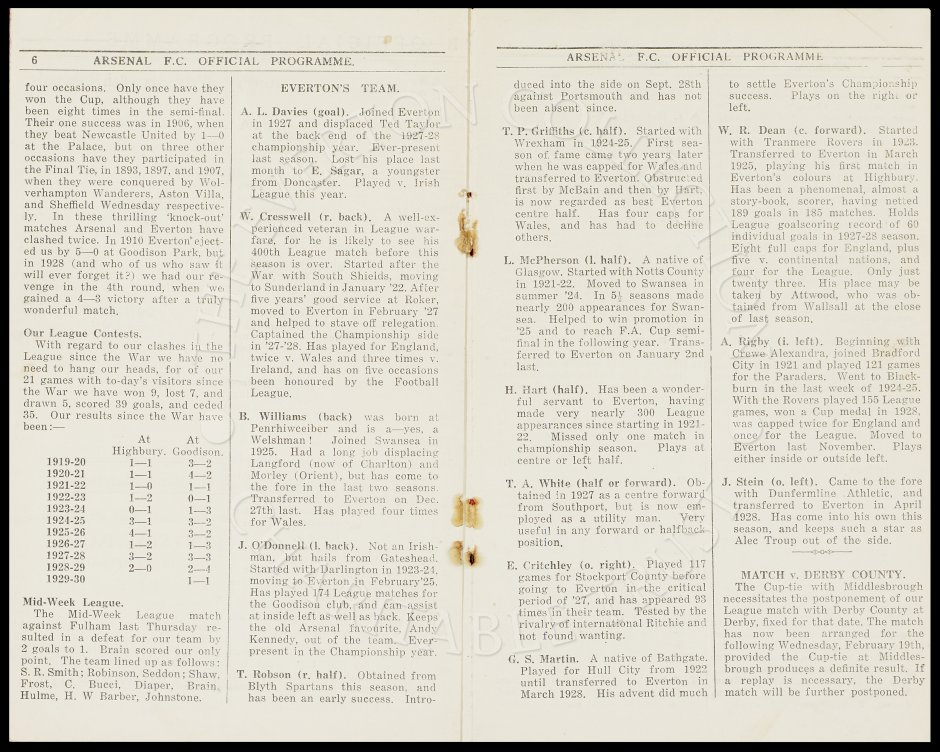 6 ARSENAL F.C. OFFICIAL PROGRAMME.
four occasions. Only once have they
won the Cup, although they have
been eight times in the semi-final.
Their one success was in 1906, when
they beat Newcastle United by 1—0
at the Palace, but on three other
occasions have they participated in
the Final Tie, in 1893, 1897, and 1907,
when they were conquered by Wol-
verhampton Wanderers, Aston Villa,
and Sheffield Wednesday respective-
ly. In these thrilling 'knock-out'
matches Arsenal and Everton have
clashed twice. In 1910 Everton eject-
ed us by 5—0 at Goodison Park, but
in 1928 (and who of us who saw it
will ever forget it?) we had our re-
venge in the 4th round, when we
gained a 4—3 victory after a truly
wonderful match.
Our League Contests.
With regard to our clashes in the
League since the War we have no
need to hang our heads, for of our
21 games with to-day's visitors since
the War we have won 9, lost 7, and
drawn 5, scored 39 goals, and ceded
35. Our results since the War have
been:—
At At
Highbury. Goodison.
1919-20 1—1 3—2
1920-21 1—1 4—2
1921-22 1—0 1—1
1922-23 1—2 0—1
1923-24 0—1 1—3
1924-25 3—1 3—2
1925-26 4—1 3—2
1926-27 1—2 1—3
1927-28 3—2 3—3
1928-29 2—0 2—4
1929-30 1—1
Mid-Week League.
The Mid-Week League match
against Fulham last Thursday re-
sulted in a defeat for our team by
2 goals to 1. Brain scored our only
point. The team lined up as follows:
S. R. Smith; Robinson, Seddon; Shaw,
Frost, C. Bucci, Diaper, Brain,
Hulme, H. W Barber, Johnstone.
EVERTON'S TEAM.
A. L. Davies (goal). Joined Everton
in 1927 and displaced Ted Taylor
at the back end of the 1927-28
championship year. Ever-present
last season. Lost his place last
month to E. Sagar, a youngster
from Doncaster. Played v. Irish
League this year.
W. Cresswell (r. back). A well-ex-
perienced veteran in League war-
fare, for he is likely to see his
400th League match before this
season is over. Started after the
War with South Shields, moving
to Sunderland in January '22. After
five years' good service at Roker,
moved to Everton in February '27
and helped to stave off relegation.
Captained the Championship side
in '27-'28. Has played for England,
twice v. Wales and three times v.
Ireland, and has on five occasions
been honoured by the Football
League.
B. Williams (back) was born at
Penrhiwceiber and is a—yes, a
Welshman! Joined Swansea in
1925. Had a long job displacing
Langford (now of Charlton) and
Morley (Orient), but has come to
the fore in the last two seasons.
Transferred to Everton on Dec.
27th last. Has played four times
for Wales.
J. O'Donnell (l. back). Not an Irish-
man, but hails from Gateshead.
Started with Darlington in 1923-24,
moving to Everton in February'25.
Has played 174 League matches for
the Goodison club, and can assist
at inside left as well as back. Keeps
the old Arsenal favourite, Andy
Kennedy, out of the team. Ever-
present in the Championship year.
T. Robson (r. half). Obtained from
Blyth Spartans this season, and
has been an early success. Intro-
ARSENAL F.C. OFFICIAL PROGRAMME
duced into the side on Sept. 28th
against Portsmouth and has not
been absent since.
T. P. Griffiths (c. half). Started with
Wrexham in 1924-25. First sea-
son of fame came two years later
when he was capped for Wales and
transferred to Everton. Obstructed
first by McBain and then by Hart,
is now regarded as best Everton
centre half. Has four caps for
Wales, and has had to decline
others.
L. McPherson (l. half). A native of
Glasgow. Started with Notts County
in 1921-22. Moved to Swansea in
summer '24. In 5½ seasons made
nearly 200 appearances for Swan-
sea. Helped to win promotion in
'25 and to reach F.A. Cup semi-
final in the following year. Trans-
ferred to Everton on January 2nd
last.
H. Hart (half). Has been a wonder-
ful servant to Everton, having
made very nearly 300 League
appearances since starting in 1921-
22. Missed only one match in
championship season. Plays at
centre or left half.
T. A. White (half or forward). Ob-
tained in 1927 as a centre forward
from Southport, but is now em-
ployed as a utility man. Very
useful in any forward or halfback
position.
E. Critchley (o. right). Played 117
games for Stockport County before
going to Everton in the critical
period of '27, and has appeared 93
times in their team. Tested by the
rivalry of international Ritchie and
not found wanting.
G. S. Martin. A native of Bathgate.
Played for Hull City from 1922
until transferred to Everton in
March 1928. His advent did much
to settle Everton's Championship
success. Plays on the right or
left.
W. R. Dean (c. forward). Started
with Tranmere Rovers in 1923.
Transferred to Everton in March
1925, playing his first match in
Everton's colours at Highbury.
Has been a phenomenal, almost a
story-book, scorer, having netted
189 goals in 185 matches. Holds
League goalscoring record of 60
individual goals in 1927-28 season.
Eight full caps for England, plus
five v. continental nations, and
four for the League. Only just
twenty three. His place may be
taken by Attwood, who was ob-
tained from Wallsall at the close
of last season.
A. Rigby (i. left). Beginning with
Crewe Alexandra, joined Bradford
City in 1921 and played 121 games
for the Paraders. Went to Black-
burn in the last week of 1924-25.
With the Rovers played 155 League
games, won a Cup medal in 1928,
was capped twice for England and
once for the League. Moved to
Everton last November. Plays
either inside or outside left.
J. Stein (o. left). Came to the fore
with Dunfermline Athletic, and
transferred to Everton in April
1928. Has come into his own this
season, and keeps such a star as
Alec Troup out of the side.
MATCH v. DERBY COUNTY.
The Cup-tie with Middlesbrough
necessitates the postponement of our
League match with Derby County at
Derby, fixed for that date. The match
has now been arranged for the
following Wednesday, February 19th,
provided the Cup-tie at Middles-
brough produces a definite result. If
a replay is necessary, the Derby
match will be further postponed.